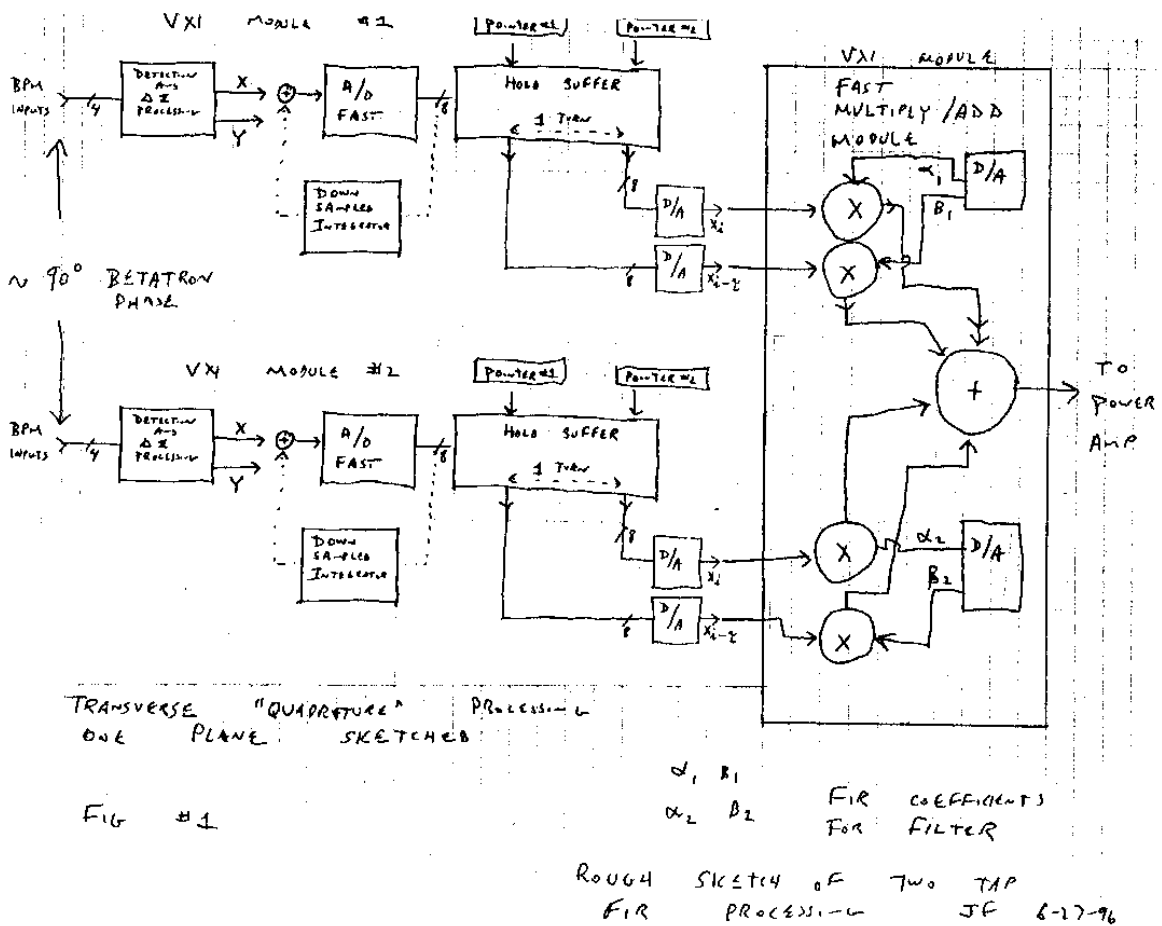 VXI MODULE #1
POINTER #1
POINTER #2
BPM
INPUTS
4
DETECTION
AND
Δ Σ
PROCESSING
X
Y
+
A/D
FAST
8
HOLD BUFFER
1 TURN
DOWN
SAMPLED
INTEGRATOR
8
D/A
Xi
8
D/A
Xi-τ
~ 90° BETATRON
PHASE
VXI MODULE #2
POINTER #1
POINTER #2
BPM
INPUTS
4
DETECTION
AND
Δ Σ
PROCESSING
X
Y
+
A/D
FAST
8
HOLD BUFFER
1 TURN
DOWN
SAMPLED
INTEGRATOR
8
D/A
Xi
8
D/A
Xi-τ
VXI MODULE
FAST
MULTIPLY/ADD
MODULE
α1
D/A
B1
X
X
+
TO
POWER
AMP
X
α2
D/A
B2
X
TRANSVERSE "QUADRATURE" PROCESSING
ONE PLANE SKETCHED
FIG #1
α1 B1
α2 B2
FIR COEFFICIENTS
FOR FILTER
ROUGH SKETCH OF TWO TAP
FIR PROCESSING JF 6-27-96